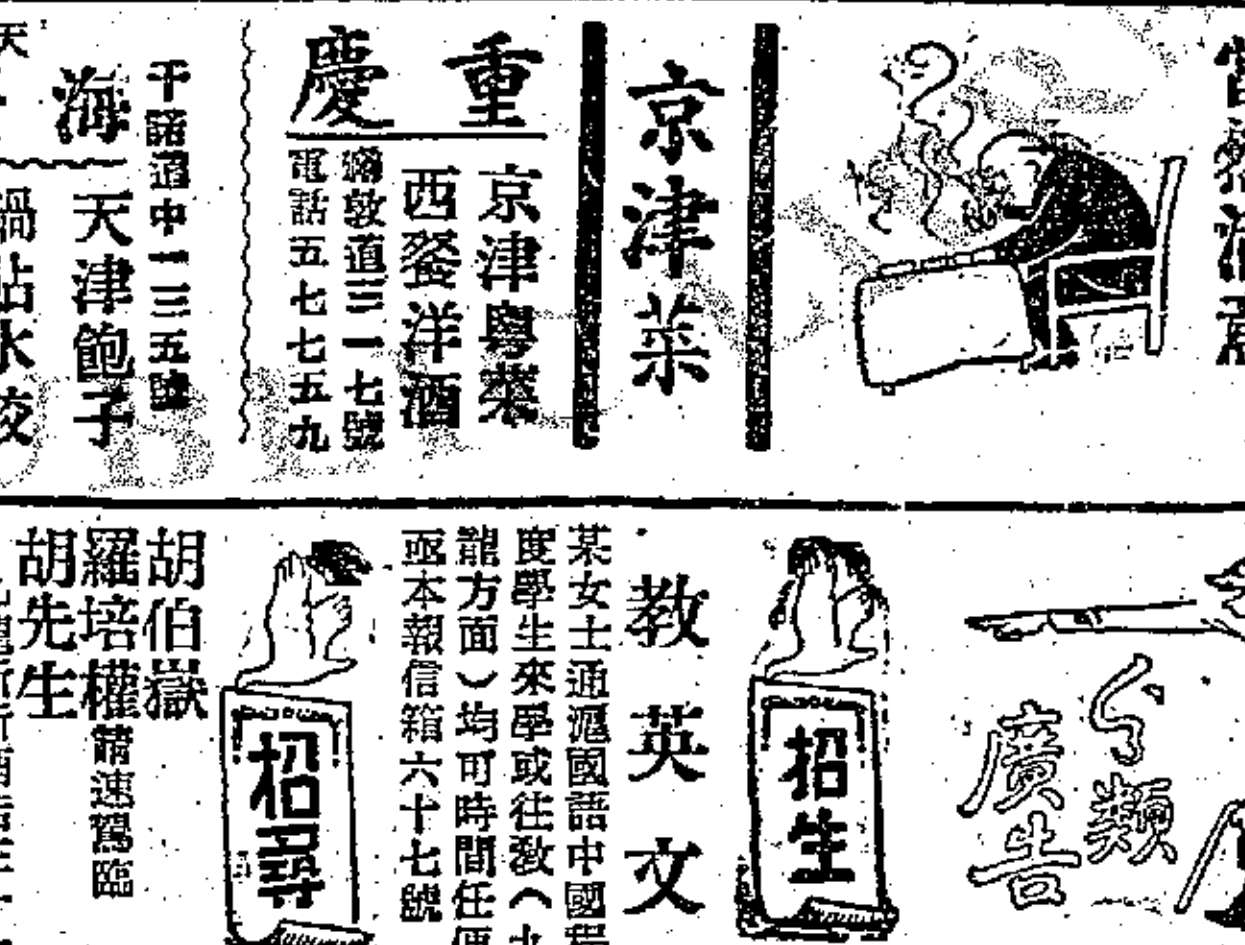 京津菜
重慶
京津粵菜
西餐洋酒
電話五七七五九
海
干諾道中一三五號
天津飽子
鍋貼水餃
分類
廣告
招生
教英文
某女士通滬國語中國程
度學生來學或往教（九
龍方面）均可時間任便
函本報信箱六十七號
招尋
胡伯嶽
羅培權請速駕臨
胡先生